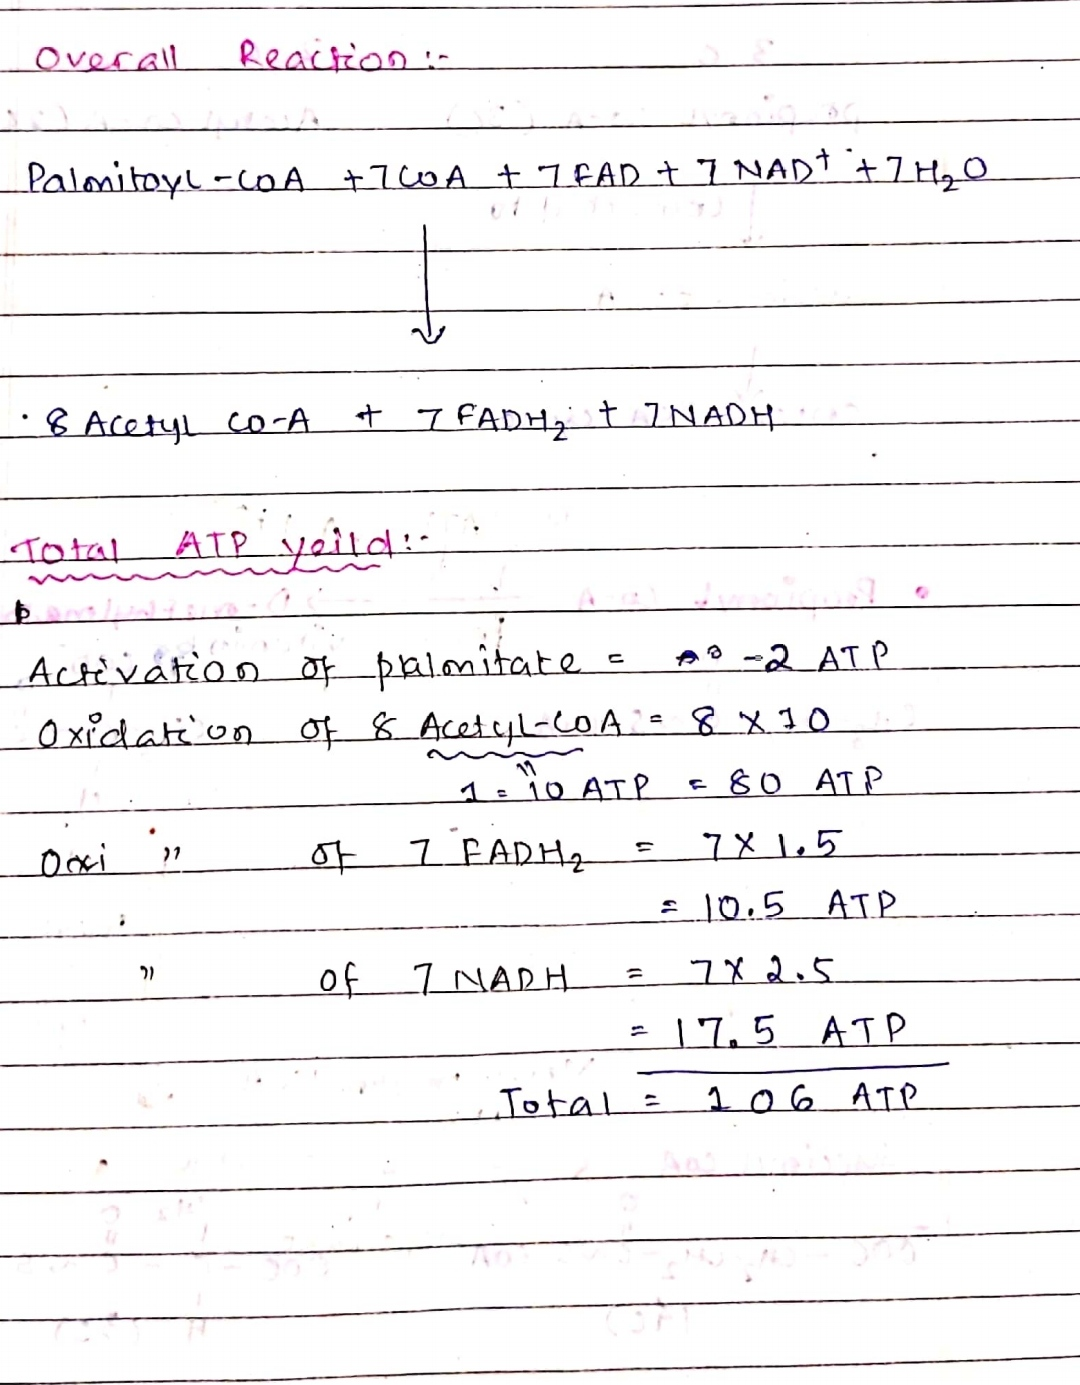 Overall Reaction :-
Palmitoyl-CoA + 7 CoA + 7 FAD + 7 NAD⁺ + 7 H₂O
↓
8 Acetyl CO-A + 7 FADH₂ + 7 NADH
Total ATP yeild :-
Activation of palmitate = -2 ATP
Oxidation of 8 Acetyl-CoA = 8 x 10
1 = 10 ATP = 80 ATP
Oxi " of 7 FADH₂ = 7 x 1.5
= 10.5 ATP
" of 7 NADH = 7 x 2.5
= 17.5 ATP
Total = 106 ATP